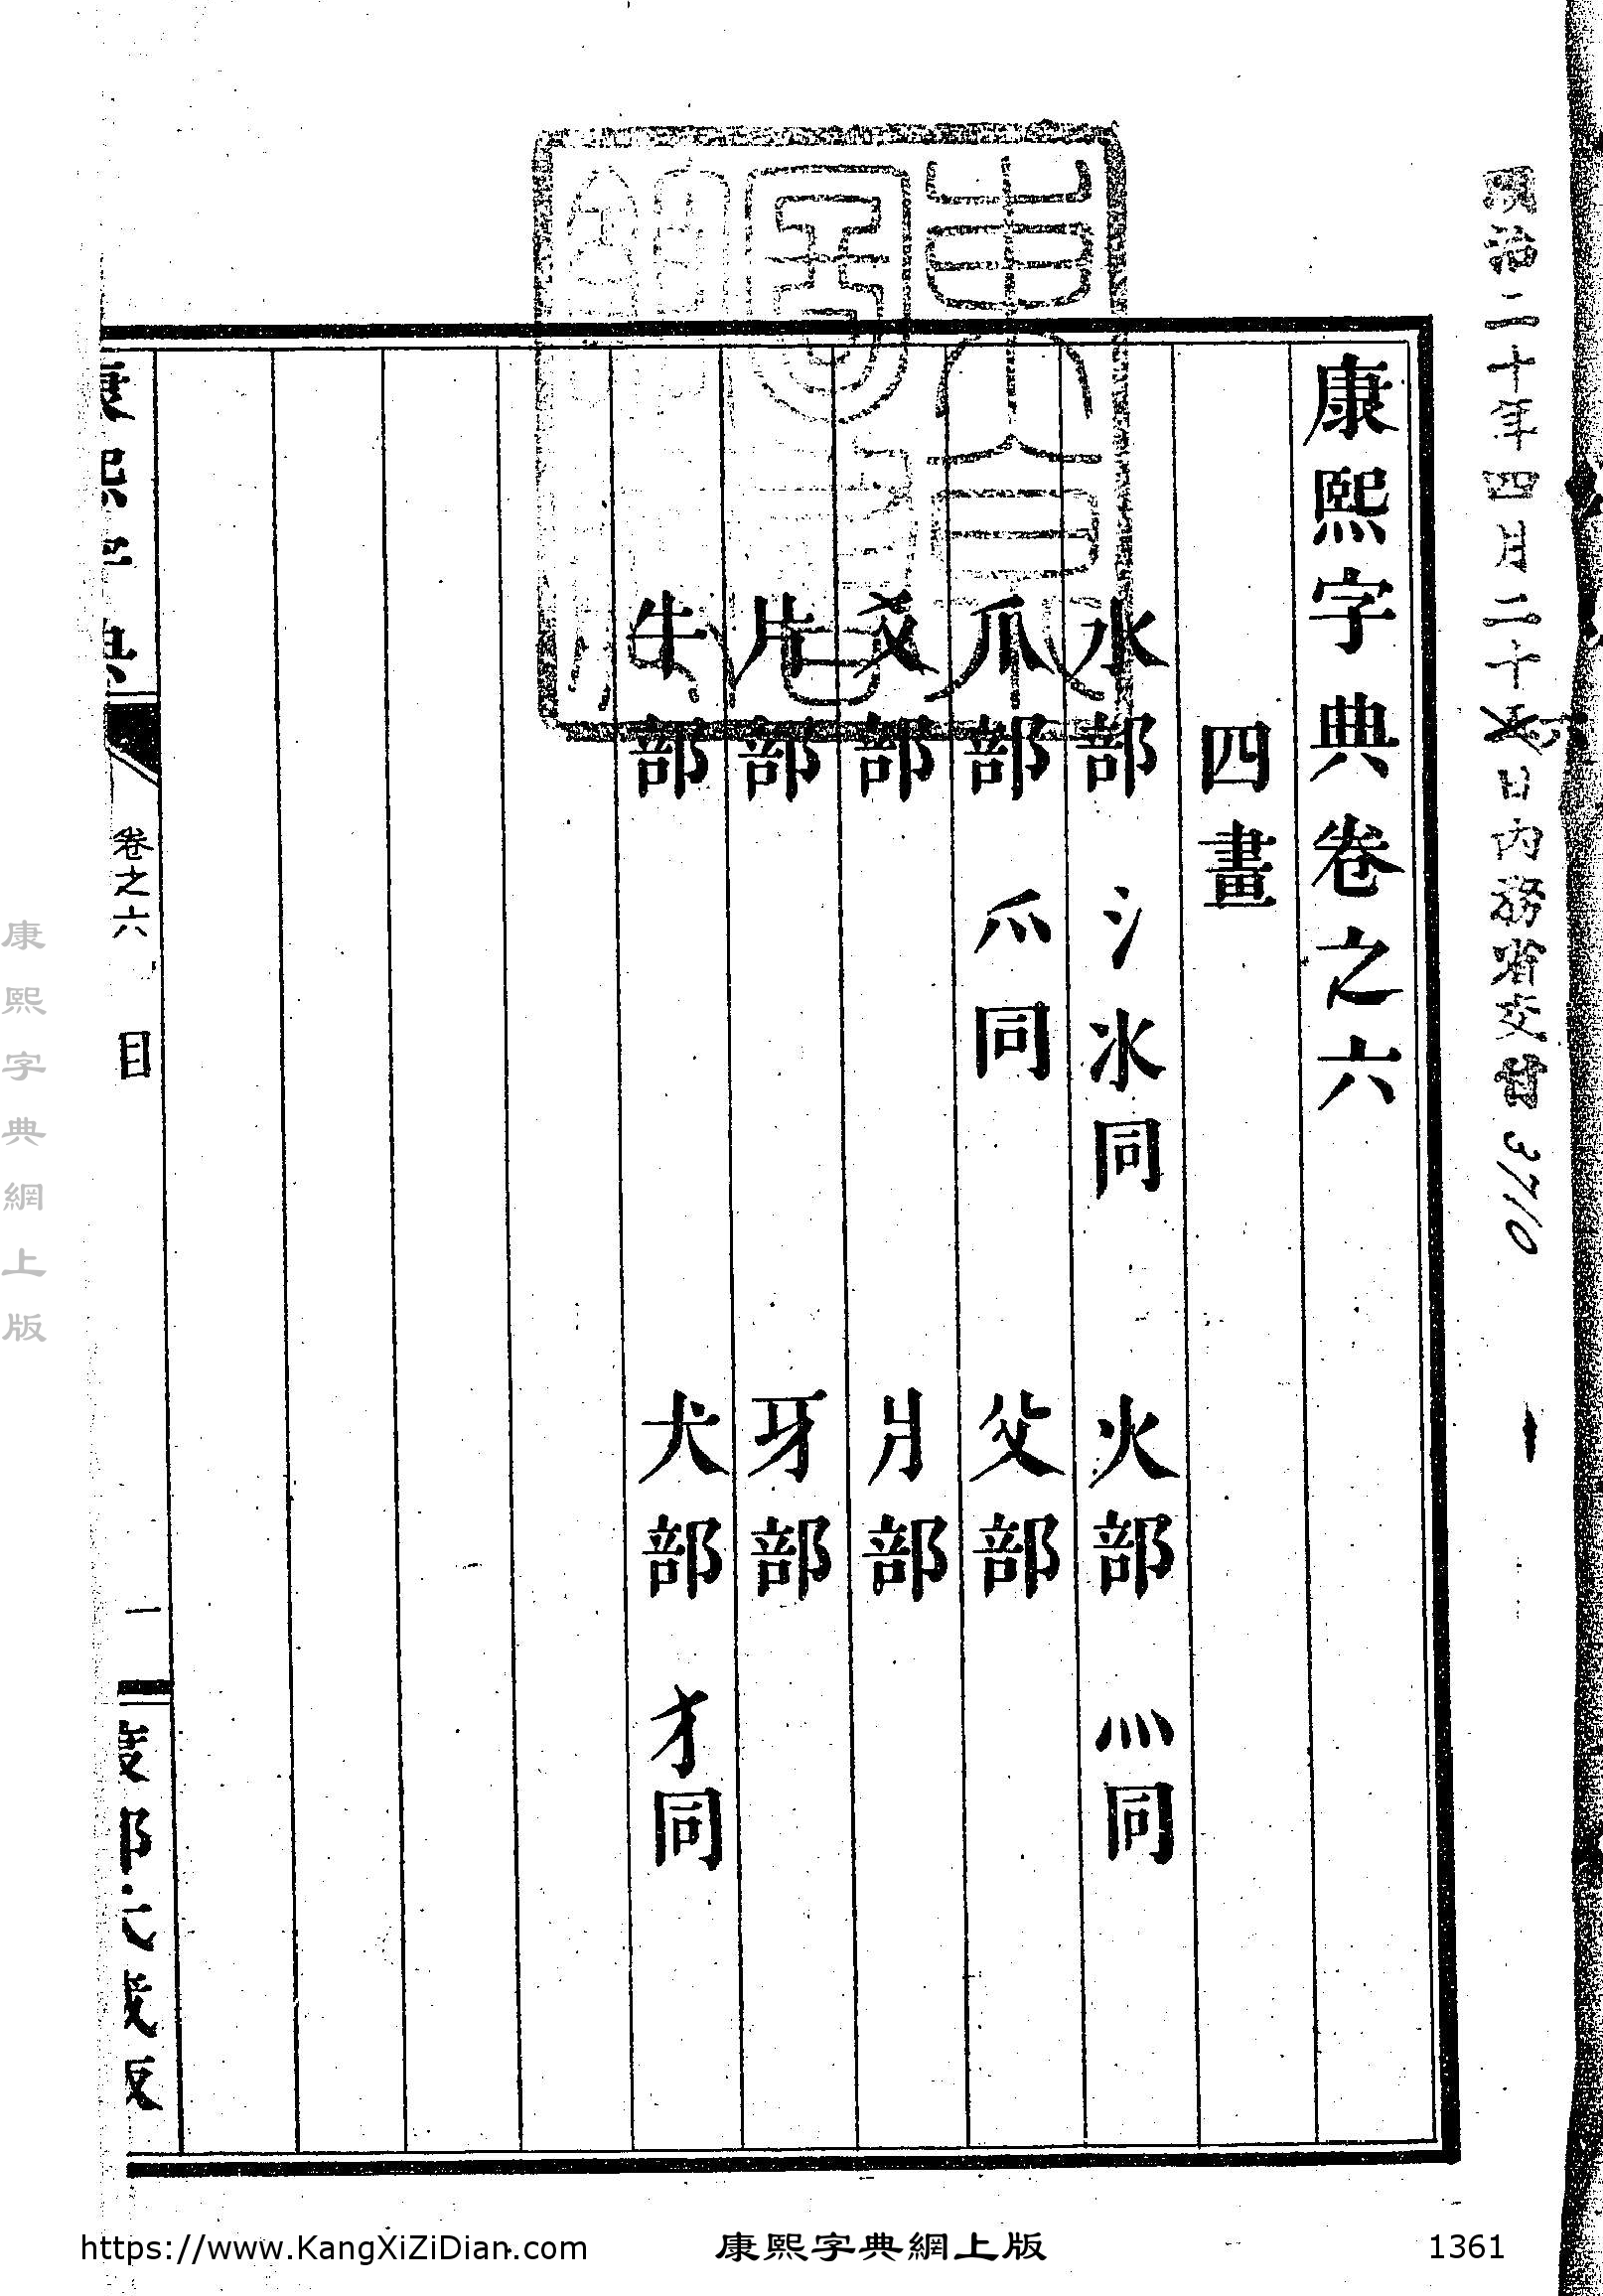 明治二十年四月二十 日內務省交付 3710
康熙字典卷之六
四畫
水部 氵氺同 火部 灬同
爪部 爫同 父部
爻部 爿部
片部 牙部
牛部 犬部 犭同
卷之六 目 一
康熙字典網上版
https://www.KangXiZiDian.com 康熙字典網上版 1361